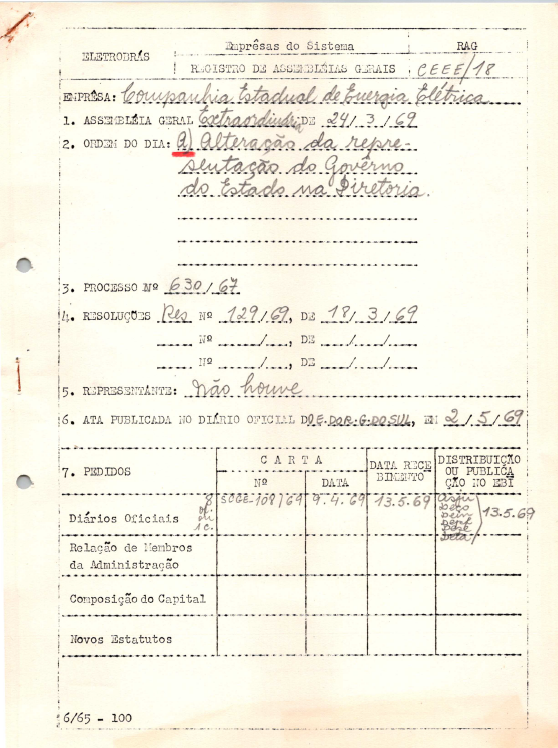 ELETROBRÁS
Emprêsas do Sistema
RAG
REGISTRO DE ASSEMBLÉIAS GERAIS
CEEE/18
EMPRÊSA: Companhia Estadual de Energia Elétrica
1. ASSEMBLÉIA GERAL Extraordinária DE 24/3/69
2. ORDEM DO DIA: A) Alteração da repre-
sentação do Govêrno
do Estado na Diretoria.
3. PROCESSO Nº 630/67
4. RESOLUÇÕES Res Nº 129/69, DE 18/3/69
Nº / , DE / /
Nº / , DE / /
5. REPRESENTANTE: Não houve
6. ATA PUBLICADA NO DIÁRIO OFICIAL DO E. DO R. G. DO SUL, EM 2/5/69
7. PEDIDOS
C A R T A
Nº
DATA
DATA RECE
BIMENTO
DISTRIBUIÇÃO
OU PUBLICA
ÇÃO NO EBI
Diários Oficiais
8
1 c.
SCGE-108/69
9.4.69
13.5.69
13.5.69
Relação de Membros
da Administração
Composição do Capital
Novos Estatutos
6/65 - 100